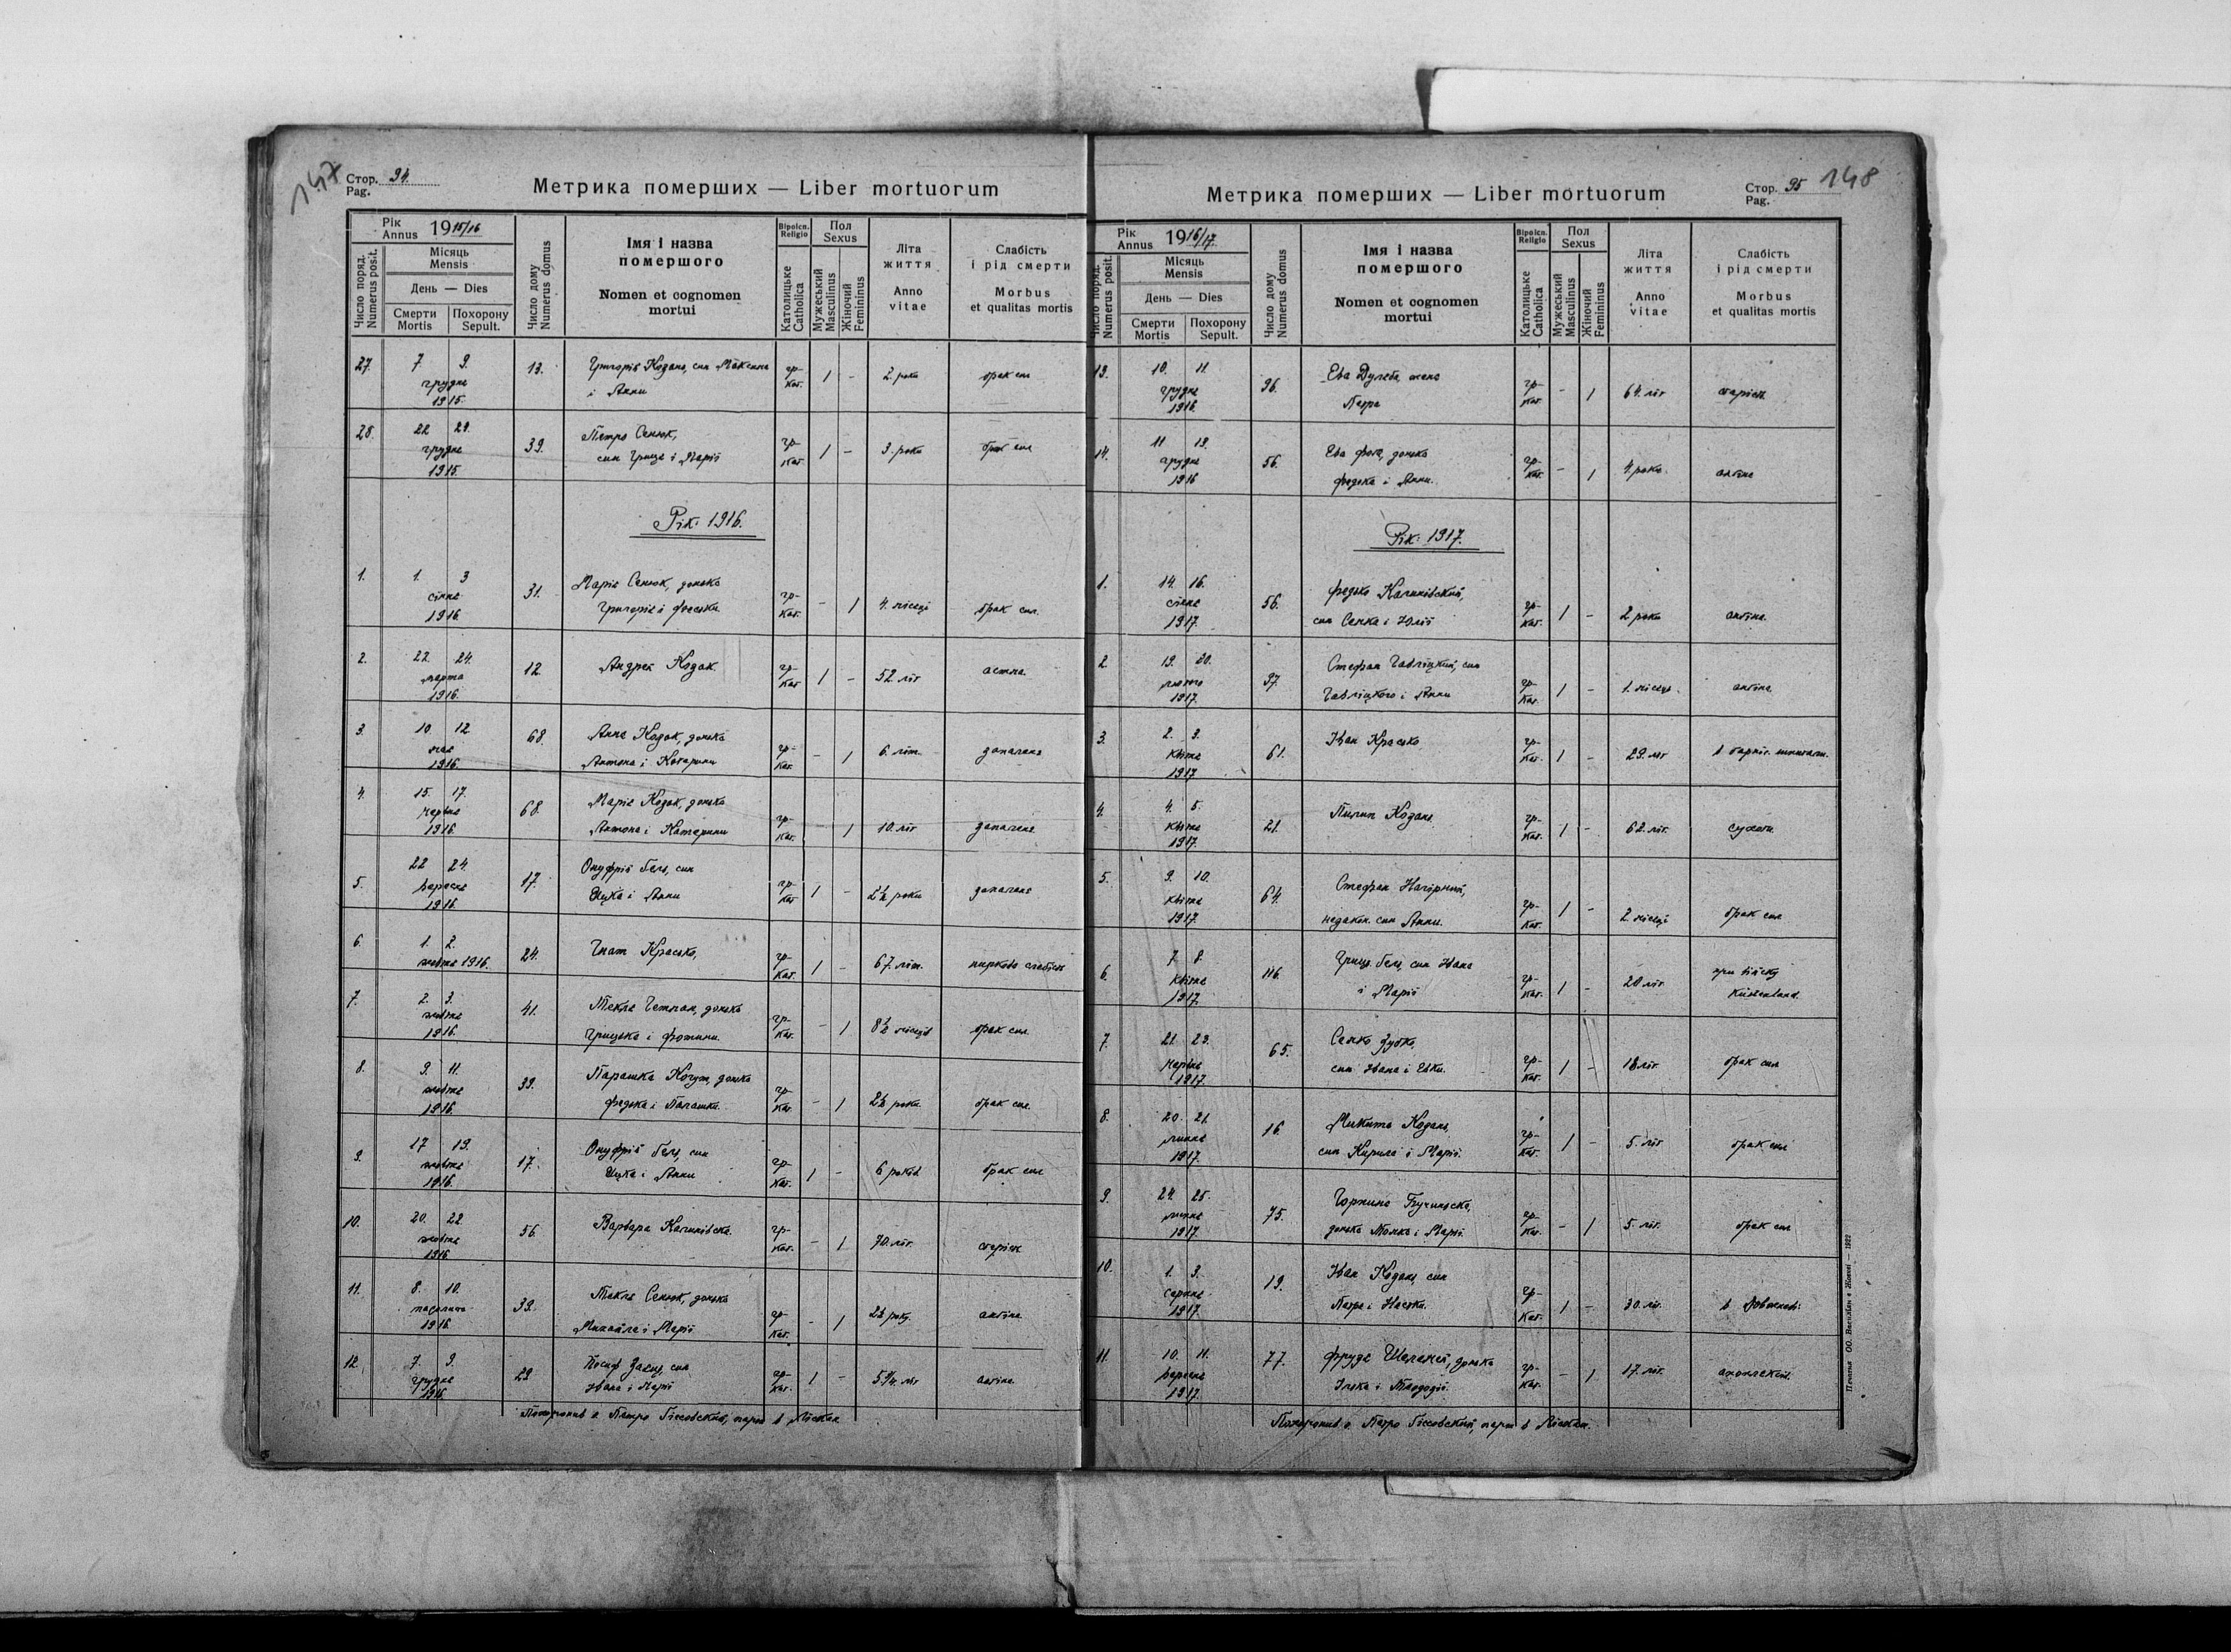 147
Стор. 94.
Pag.
Метрика померших — Liber mortuorum
Рік
Annus 1915/16
Число поряд.
Numerus posit.
Місяць
Mensis
День — Dies
Смерти
Mortis
Похорону
Sepult.
Число дому
Numerus domus
Імя і назва
помершого
Nomen et cognomen
mortui
Віроісп.
Religio
Католицьке
Catholica
Пол
Sexus
Мужеський
Masculinus
Жіночий
Femininus
Літа
життя
Anno
vitae
Слабість
і рід смерти
Morbus
et qualitas mortis
27. 7 9. 13. Григорій Кодань, син Максима гр- 1 - 2 роки брак сил
грудня і Анни кат.
1915.
28. 22 23. 39. Петро Сенюк, гр- 1 - 3. роки брак сил
грудня син Гриця і Марії кат.
1915.
Рік: 1916.
1. 1. 3 31. Марія Сенюк, донька гр- - 1 4. місяці брак сил.
січня Григорія і Феськи. кат.
1916.
2. 22. 24. 12. Андрей Кодак. гр- 1 - 52. літ астма.
марта кат
1916.
3. 10. 12 68. Анна Кодак, донька гр- - 1 6. літ.
мая Антона і Катарини кат.
1916.
4. 15. 17. 68. Марія Кодак, донька гр- - 1 10. літ
червня Антона і Катерини кат.
1916.
5. 22 24. 17. Онуфрій Гель, син гр- 1 - 2½ роки
вересня Яцка і Анни кат
1916.
6. 1. 2. 24. Гнат Красько, гр- 1 - 67. літ.
жовтня 1916. кат.
7. 2. 3. 41. Текля Гетман, донька гр- - 1 8½ місяців брак сил
жовтня Грицька і кат.
1916.
8. 9. 11. 39. Парашка донька гр- - 1 2½ роки. брак сил.
жовтня Федька і Палашки. кат
1916.
9. 17 19. 17. Онуфрій Гель, син гр- 1 - 6 років брак сил
жовтня Яцка і Анни кат.
1916.
10. 20. 22 56. Варвара Калиновска. гр- - 1 70. літ. старість
жовтня кат.
1916
11. 8. 10. 39. Текля Сенюк, донька гр- - 1 2½ року. ангіна.
падолиста Михайла і Марії кат.
1916.
12. 7. 9. 29 Йосиф син гр- 1 - 5¼. літ ангіна.
грудня Івана і Марії кат.
1916
Похоронив о. Петро парох в
Метрика померших — Liber mortuorum
Стор. 95
Pag.
148
Рік
Annus 1916/17.
Число поряд.
Numerus posit.
Місяць
Mensis
День — Dies
Смерти
Mortis
Похорону
Sepult.
Число дому
Numerus domus
Імя і назва
помершого
Nomen et cognomen
mortui
Віроісп.
Religio
Католицьке
Catholica
Пол
Sexus
Мужеський
Masculinus
Жіночий
Femininus
Літа
життя
Anno
vitae
Слабість
і рід смерти
Morbus
et qualitas mortis
13. 10. 11. 96. Ева Дулеба, жена гр- - 1 64. літ старість
грудня Петра кат.
1916.
14. 11 13. 56. Ева донька гр- - 1 4. роки. ангіна
грудня Федька і Анни. кат.
1916
Рік: 1917.
1. 14. 16. 56. Федько Калиновский, гр- 1 - 2 роки ангіна.
січня син Сенка і Юлії кат.
1917.
2 19. 20. 97. Стефан Гавліцкий, син гр- 1 - 1. місяць. ангіна.
лютого Гавліцкого і Анни кат.
1917.
3. 2. 3. 61. Іван Красько гр- 1 - 29. літ
квітня кат.
1917.
4. 4. 5. 21. Пилип Кодань. гр- 1 - 62. літ. сухоти.
квітня кат.
1917.
5. 9. 10. 64. Стефан Нагірний, гр- 1 - 2. місяці брак сил
квітня син Анни. кат.
1917.
6. 7. 8. 116. Гриць Гель, син Івана гр- 1 - 20 літ при війську
квітня і Марії кат. Küstenland.
1917.
7. 21. 23. 65. Сенко Дубка, гр- 1 - 18 літ. брак сил
червня син Івана і Евки. кат.
1917.
8. 20. 21. 16. Микита Кодань, гр- 1 - 5. літ брак сил
липня син Кирила і Марії. кат.
1917.
9. 24. 25. 75. гр- - 1 5. літ. брак сил
липня донька Томка і Марії. кат.
1917.
10. 1. 3. 19. Іван Кодань, син гр- 1 - 30. літ.
серпня Петра і Настки. кат.
1917.
11. 10. 11. 77. донька гр- - 1 17. літ.
вересня Ілька і Теодозії. кат.
1917.
Похоронив о. Петро парох в